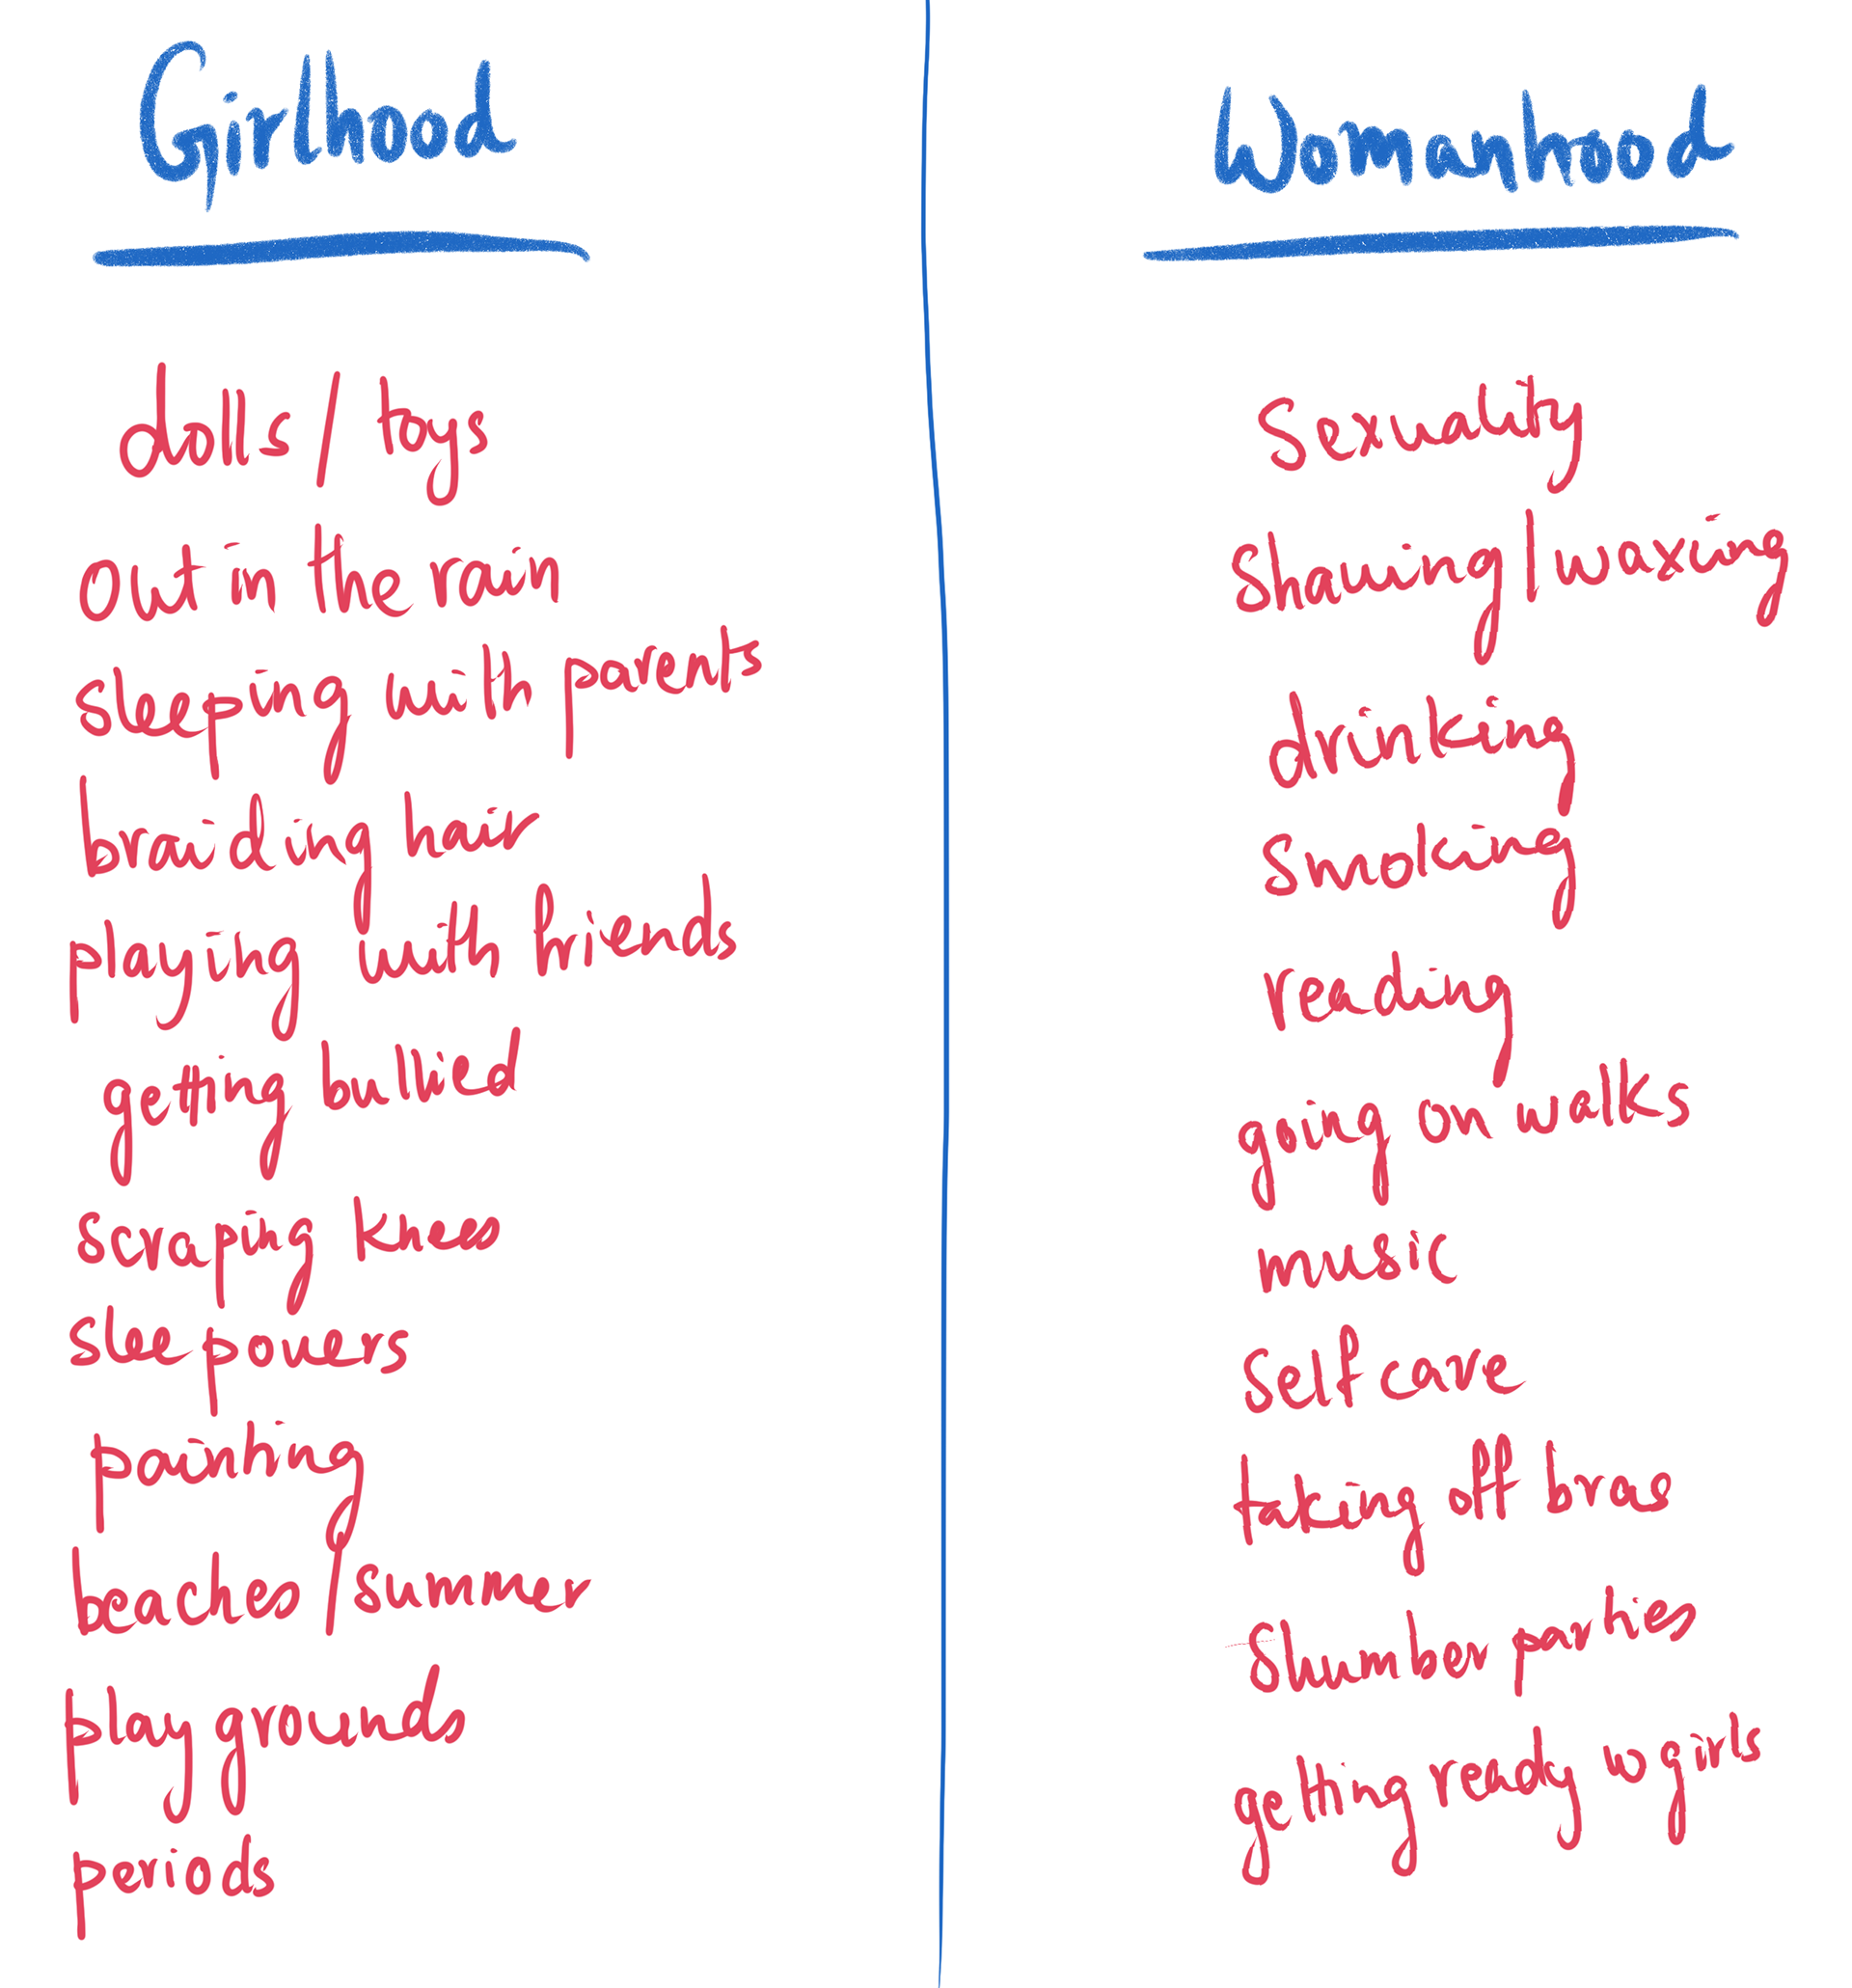 Girlhood
dolls / toys
out in the rain
sleeping with parents
braiding hair
playing with friends
getting bullied
scraping knees
sleepovers
painting
beaches / summer
playgrounds
periods
Womanhood
Sexuality
Shaving / waxing
drinking
smoking
reading
going on walks
music
Self care
taking off bras
Slumber parties
getting ready w girls